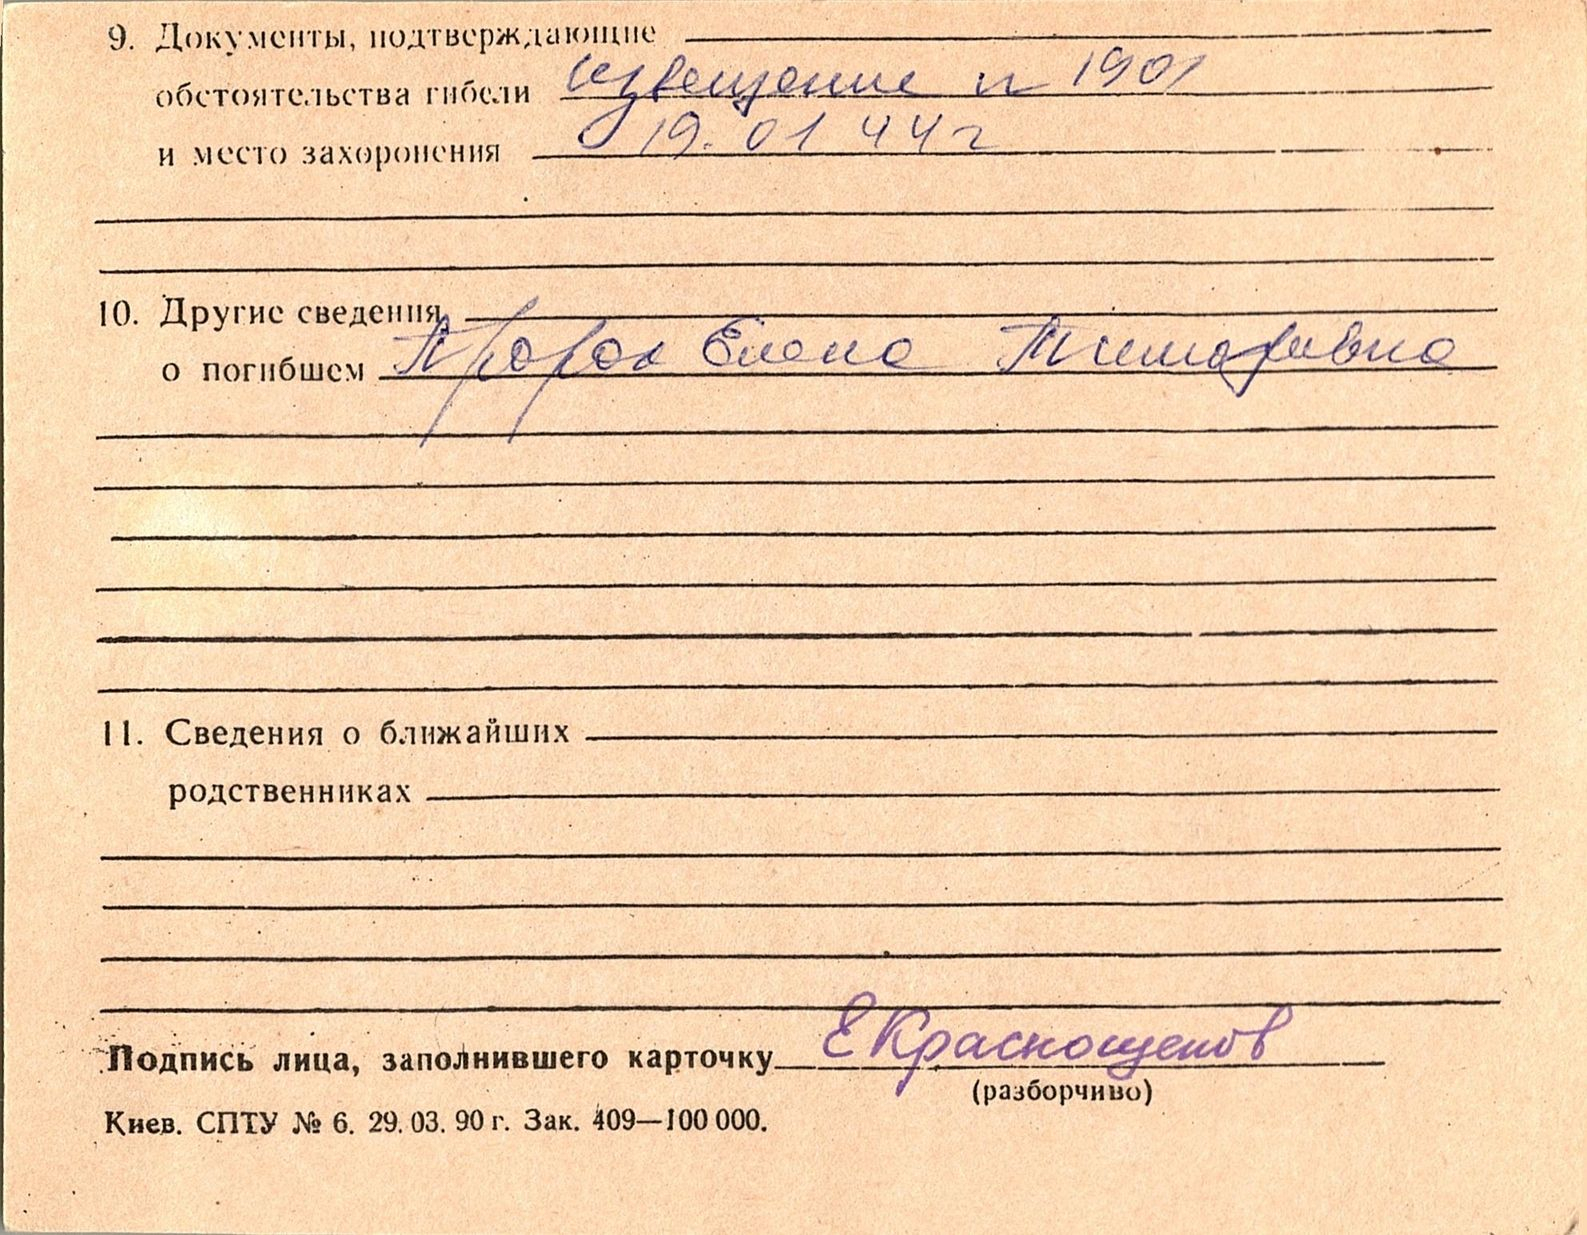 9. Документы, подтверждающие
обстоятельства гибели извещение n 1901
и место захоронения 19.01 44 г
10. Другие сведения
о погибшем Пророк Елена
11. Сведения о ближайших
родственниках
Подпись лица, заполнившего карточку Е Краснощеков
(разборчиво)
Киев. СПТУ № 6. 29.03.90 г. Зак. 409—100 000.